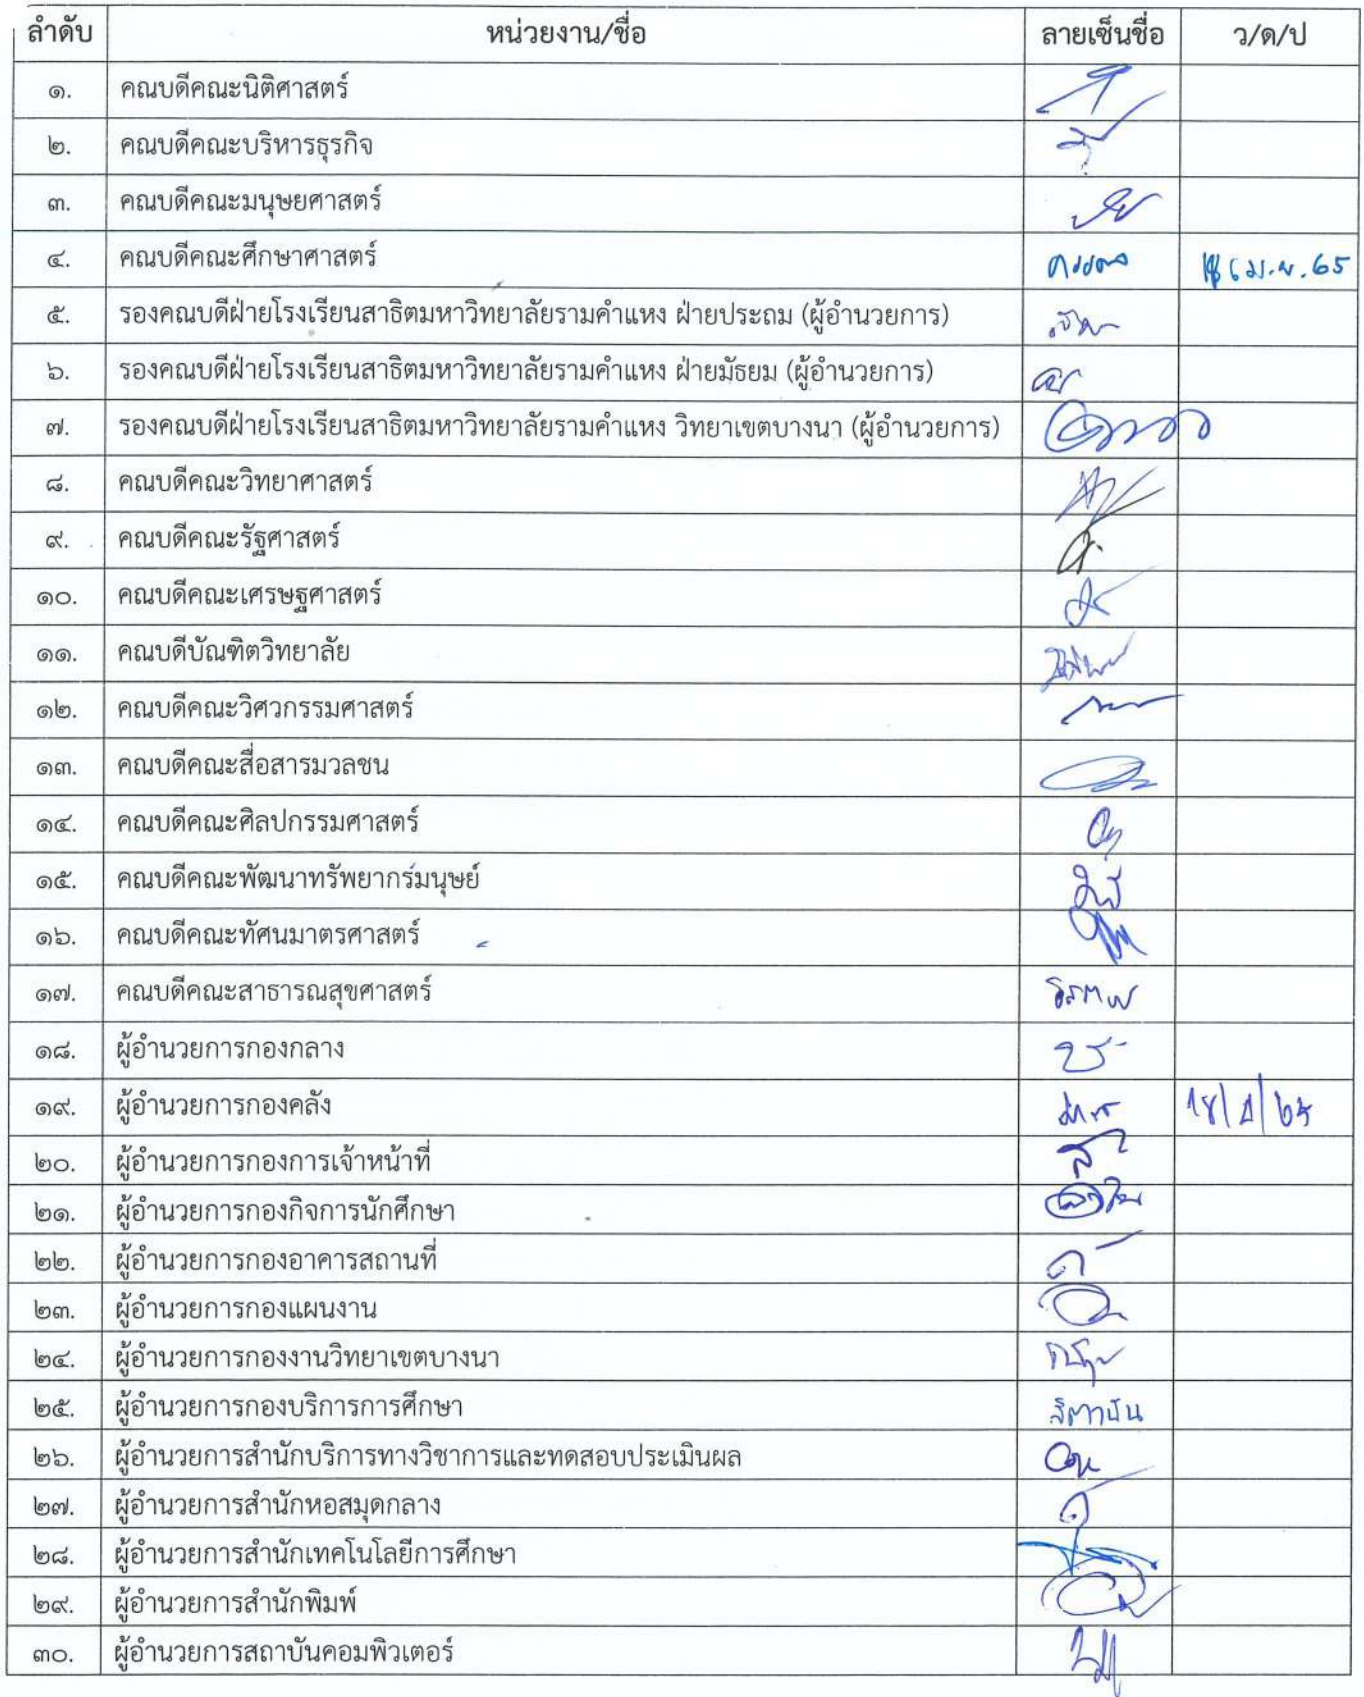 ลำดับ หน่วยงาน/ชื่อ ลายเซ็นชื่อ ว/ด/ป
๑. คณบดีคณะนิติศาสตร์
๒. คณบดีคณะบริหารธุรกิจ
๓. คณบดีคณะมนุษยศาสตร์
๔. คณบดีคณะศึกษาศาสตร์ เม.ย. 65
๕. รองคณบดีฝ่ายโรงเรียนสาธิตมหาวิทยาลัยรามคำแหง ฝ่ายประถม (ผู้อำนวยการ)
๖. รองคณบดีฝ่ายโรงเรียนสาธิตมหาวิทยาลัยรามคำแหง ฝ่ายมัธยม (ผู้อำนวยการ)
๗. รองคณบดีฝ่ายโรงเรียนสาธิตมหาวิทยาลัยรามคำแหง วิทยาเขตบางนา (ผู้อำนวยการ)
๘. คณบดีคณะวิทยาศาสตร์
๙. คณบดีคณะรัฐศาสตร์
๑๐. คณบดีคณะเศรษฐศาสตร์
๑๑. คณบดีบัณฑิตวิทยาลัย
๑๒. คณบดีคณะวิศวกรรมศาสตร์
๑๓. คณบดีคณะสื่อสารมวลชน
๑๔. คณบดีคณะศิลปกรรมศาสตร์
๑๕. คณบดีคณะพัฒนาทรัพยากรมนุษย์
๑๖. คณบดีคณะทัศนมาตรศาสตร์
๑๗. คณบดีคณะสาธารณสุขศาสตร์
๑๘. ผู้อำนวยการกองกลาง
๑๙. ผู้อำนวยการกองคลัง
๒๐. ผู้อำนวยการกองการเจ้าหน้าที่
๒๑. ผู้อำนวยการกองกิจการนักศึกษา
๒๒. ผู้อำนวยการกองอาคารสถานที่
๒๓. ผู้อำนวยการกองแผนงาน
๒๔. ผู้อำนวยการกองงานวิทยาเขตบางนา
๒๕. ผู้อำนวยการกองบริการการศึกษา
๒๖. ผู้อำนวยการสำนักบริการทางวิชาการและทดสอบประเมินผล
๒๗. ผู้อำนวยการสำนักหอสมุดกลาง
๒๘. ผู้อำนวยการสำนักเทคโนโลยีการศึกษา
๒๙. ผู้อำนวยการสำนักพิมพ์
๓๐. ผู้อำนวยการสถาบันคอมพิวเตอร์